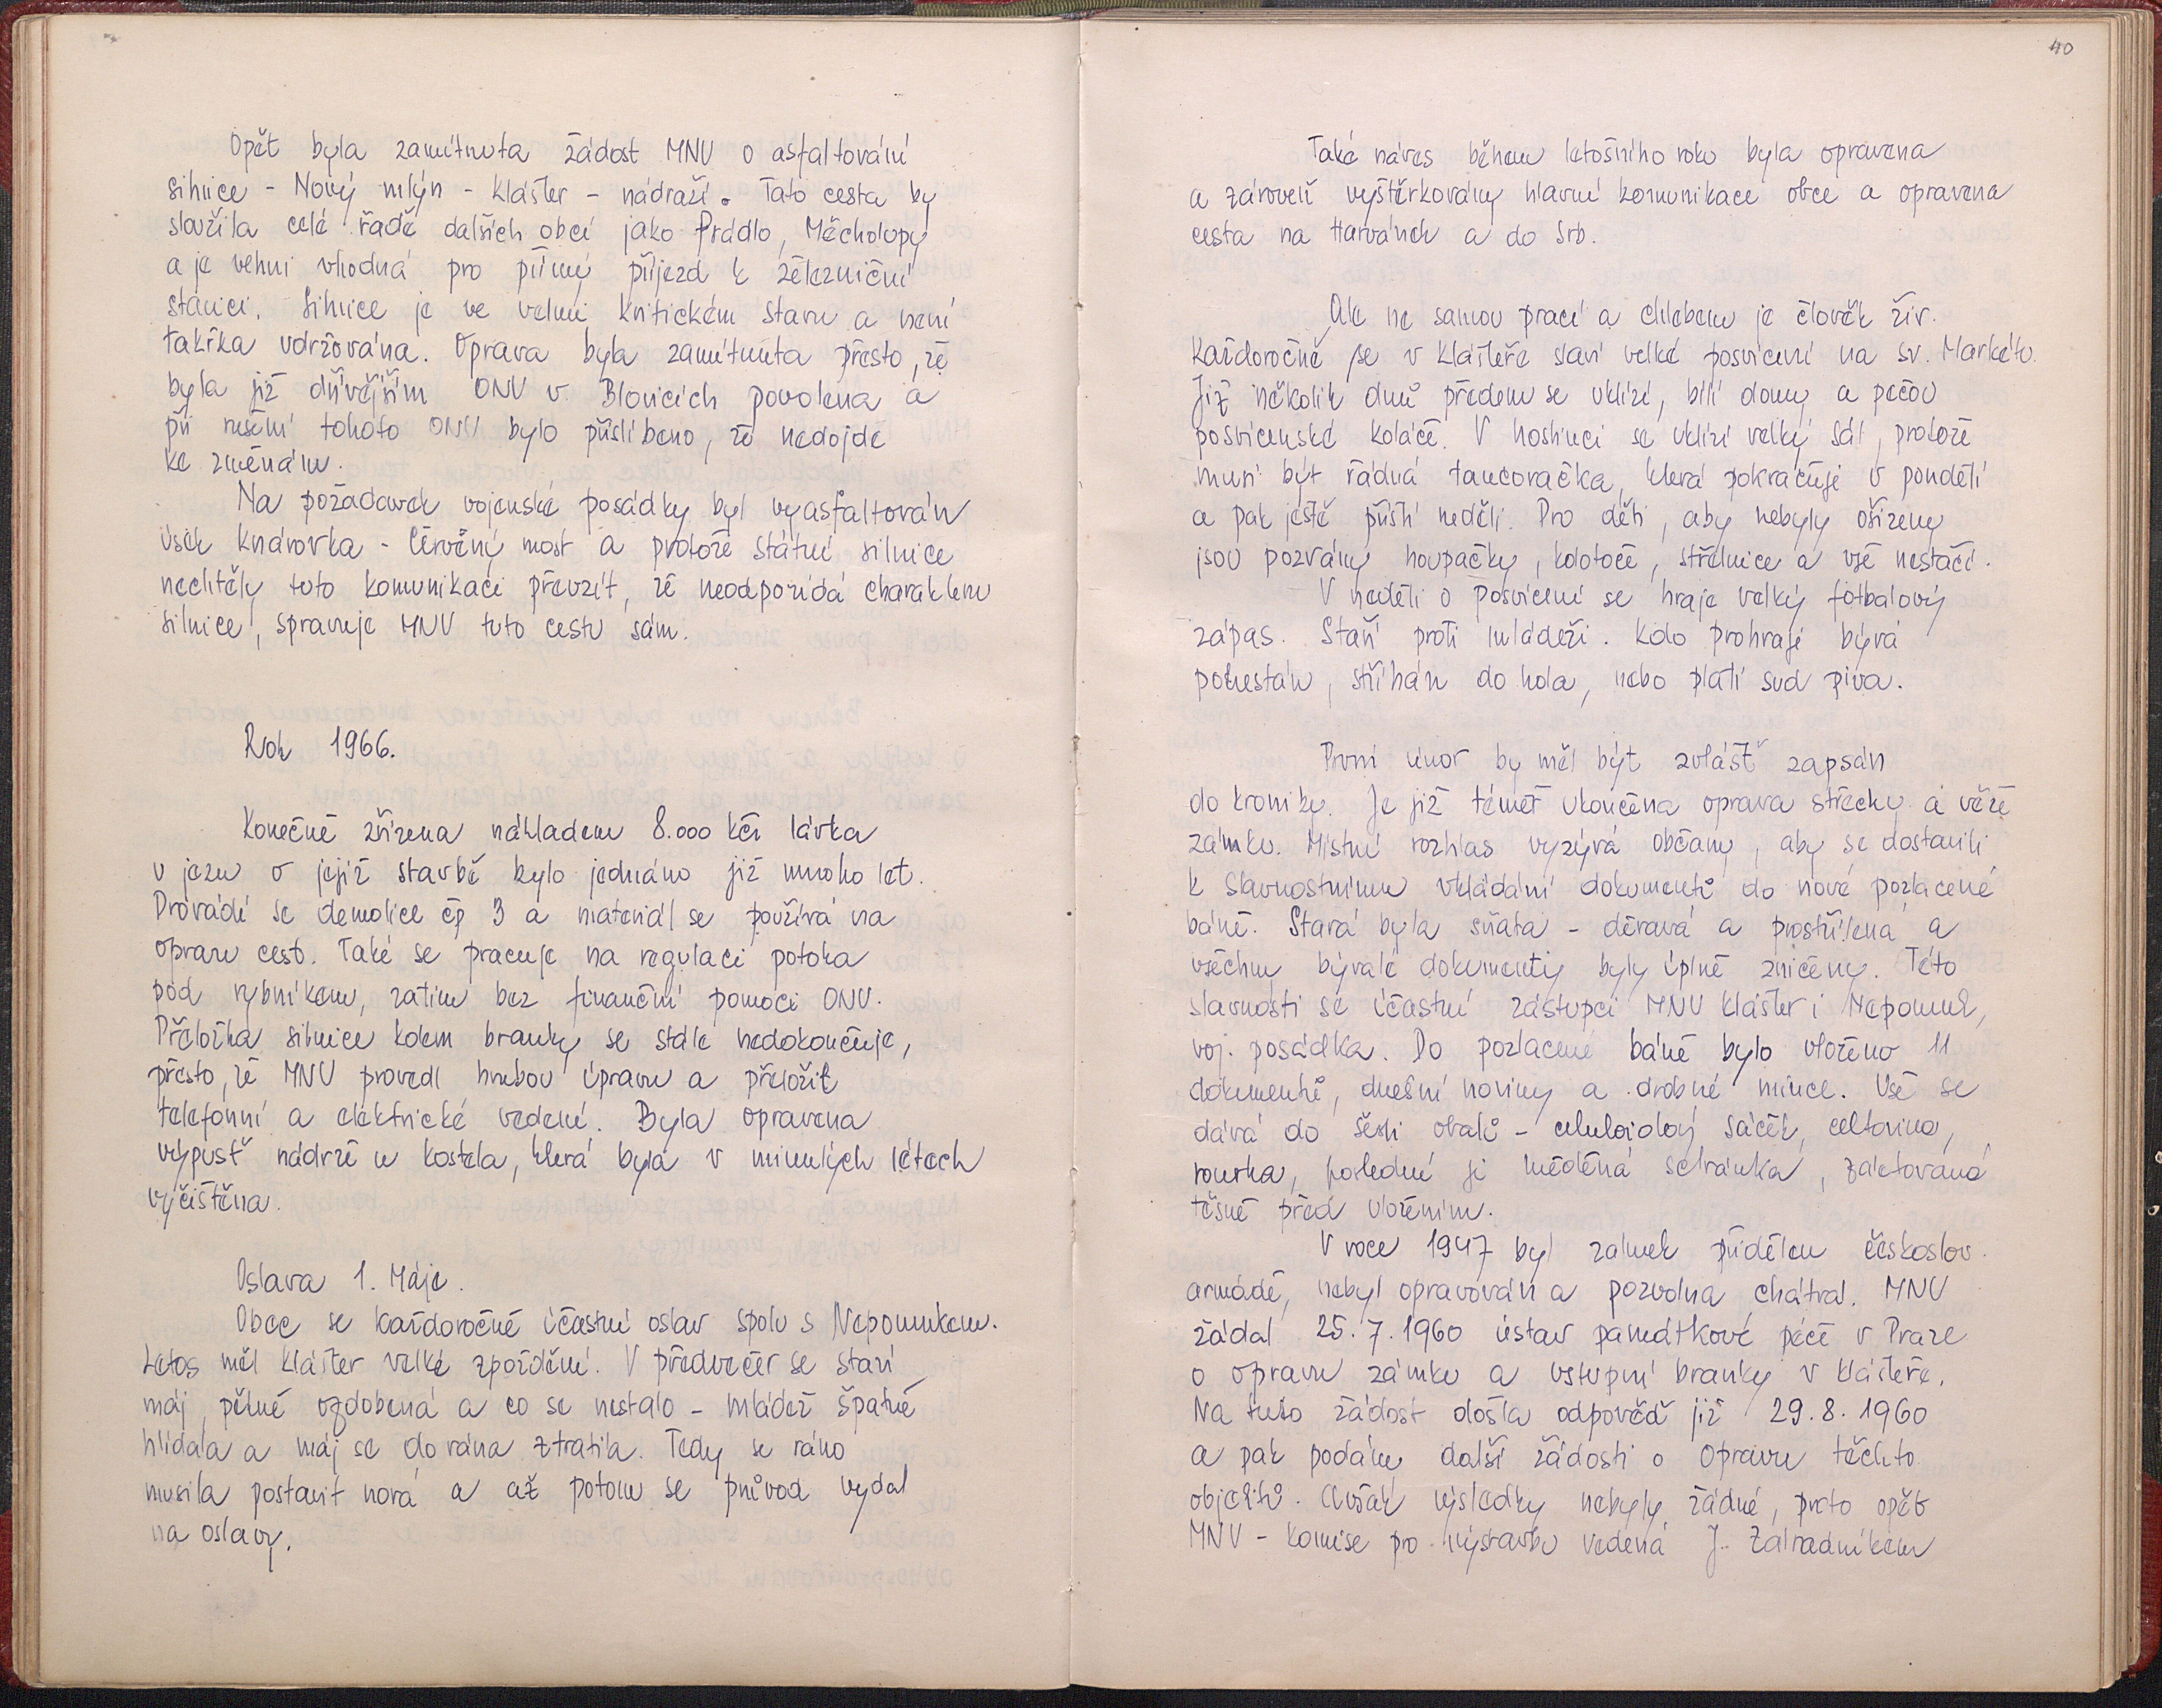 Opět byla zamítnuta žádost MNV o asfaltování
silnice - Nový mlýn - Klášter - nádraží. Tato cesta by
sloužila celé řadě dalších obcí jako Prádlo, Měcholupy
a je velmi vhodná pro přímý příjezd k železniční
stanici. Silnice je ve velmi kritickém stavu a není
takřka udržována. Oprava byla zamítnuta přesto, že
byla již dřívějším ONV v Blovicích povolena a
při rušení tohoto ONV bylo přislíbeno, že nedojde
ke změnám.
Na požadavek vojenské posádky byl vyasfaltován
úsek Knárovka - Červený most a protože státní silnice
nechtěly tuto komunikaci převzít, že neodpovídá charakteru
silnice, spravuje MNV tuto cestu sám.
Rok 1966.
Konečně zřízena nákladem 8.000 Kčs lávka
u jezu o jejíž stavbě bylo jednáno již mnoho let.
Provádí se demolice čp 3 a materiál se používá na
opravu cest. Také se pracuje na regulaci potoka
pod rybníkem, zatím bez finanční pomoci ONV.
Přeložka silnice kolem branky se stále nedokončuje,
přesto, že MNV provedl hrubou úpravu a přeložit
telefonní a elektrické vedení. Byla opravena
výpusť nádrže u kostela, která byla v minulých létech
vyčištěna.
Oslava 1. Máje.
Obec se každoročně účastní oslav spolu s Nepomukem.
Letos měl Klášter velké zpoždění. V předvečer se staví
máj, pěkně ozdobená a co se nestalo - mládež špatně
hlídala a máj se do rána ztratila. Tedy se ráno
musila postavit nová a až potom se průvod vydal
na oslavy.
40
Také náves během letošního roku byla opravena
a zároveň vyštěrkovány hlavní komunikace obce a opravena
cesta na Harvánek a do Srb.
Ale ne samou prací a chlebem je člověk živ.
Každoročně se v Klášteře slaví velké posvícení na sv. Markétu.
Již několik dnů předem se uklízí, bílí domy a pečou
posvícenské koláče. V hostinci se uklízí velký sál, protože
musí být řádná tancovačka, která pokračuje v pondělí
a pak ještě příští neděli. Pro děti, aby nebyly ošizeny
jsou pozvány houpačky, kolotoče, střelnice a vše nestačí.
V neděli o posvícení se hraje velký fotbalový
zápas. Staří proti mládeži. Kdo prohraje bývá
potrestán, stříhán do hola, nebo platí sud piva.
První únor by měl být zvlášť zapsán
do kroniky. Je již téměř ukončena oprava střechy a věže
zámku. Místní rozhlas vyzývá občany, aby se dostavili
k slavnostnímu vkládání dokumentů do nové pozlacené
báně. Stará byla sňata - děravá a prostřílena a
všechny bývalé dokumenty byly úplně zničeny. Této
slavnosti se účastní zástupci MNV Klášter i Nepomuk,
voj. posádka. Do pozlacené báně bylo vloženo 11
dokumentů, dnešní noviny a drobné mince. Vše se
dává do šesti obalů - celuloidový sáček, celtovina,
rourka, poslední je měděná schránka, zaletována
těsně před vložením.
V roce 1947 byl zámek přidělen českoslov.
armádě, nebyl opravován a pozvolna chátral. MNV
žádal 25. 7. 1960 ústav památkové péče v Praze
o opravu zámku a vstupní branky v Klášteře.
Na tuto žádost došla odpověď již 29. 8. 1960
a pak podány další žádosti o opravu těchto
objektů. Avšak výsledky nebyly žádné, proto opět
MNV - komise pro výstavbu vedená J. Zahradníkem